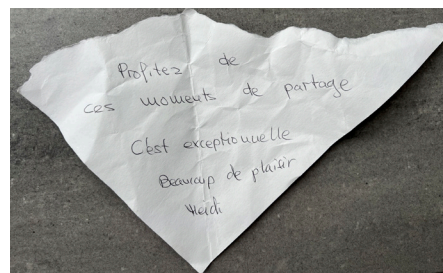 Profitez de
ces moments de partage
C'est exceptionnelle
Beaucoup de plaisir
Heidi